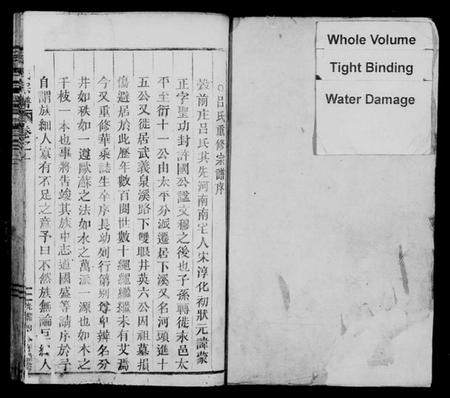 ○呂氏重修宗譜序
穀前庄呂氏其先河南南宅人宋淳化初狀元諱蒙
正字聖功封許國公諡文穆之後也子孫轉徙永邑太
平至衍十一公由太平分派遷居下溪又名河頭進十
五公又徙居武義泉溪路下雙眼井英六公因祖墓損
傷避居於此歷年數百閱世數十繩繩繼繼未有艾焉
今又重修華乘誌生卒序長幼列行第別尊卑辨名分
井如秩如一遵歐蘇之法如水之萬派一源也如木之
千枝一本也事將告竣其族中志道國盛等請序於予
自謂族細人寡有不足之意予曰不然族無論巨紅人
Whole Volume
Tight Binding
Water Damage